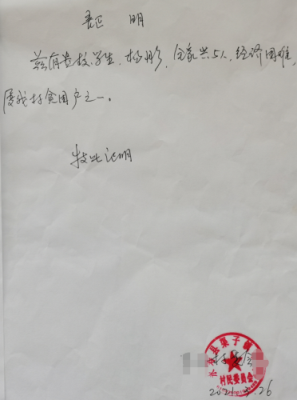 证 明
兹有贵校学生，杨彤，全家共5人，经济困难，
属我村贫困户之一。
特此证明
村民委员会